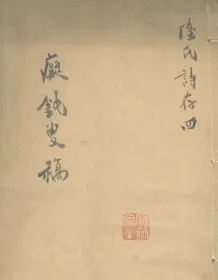 陸氏詩存四
癡鈍叟稿